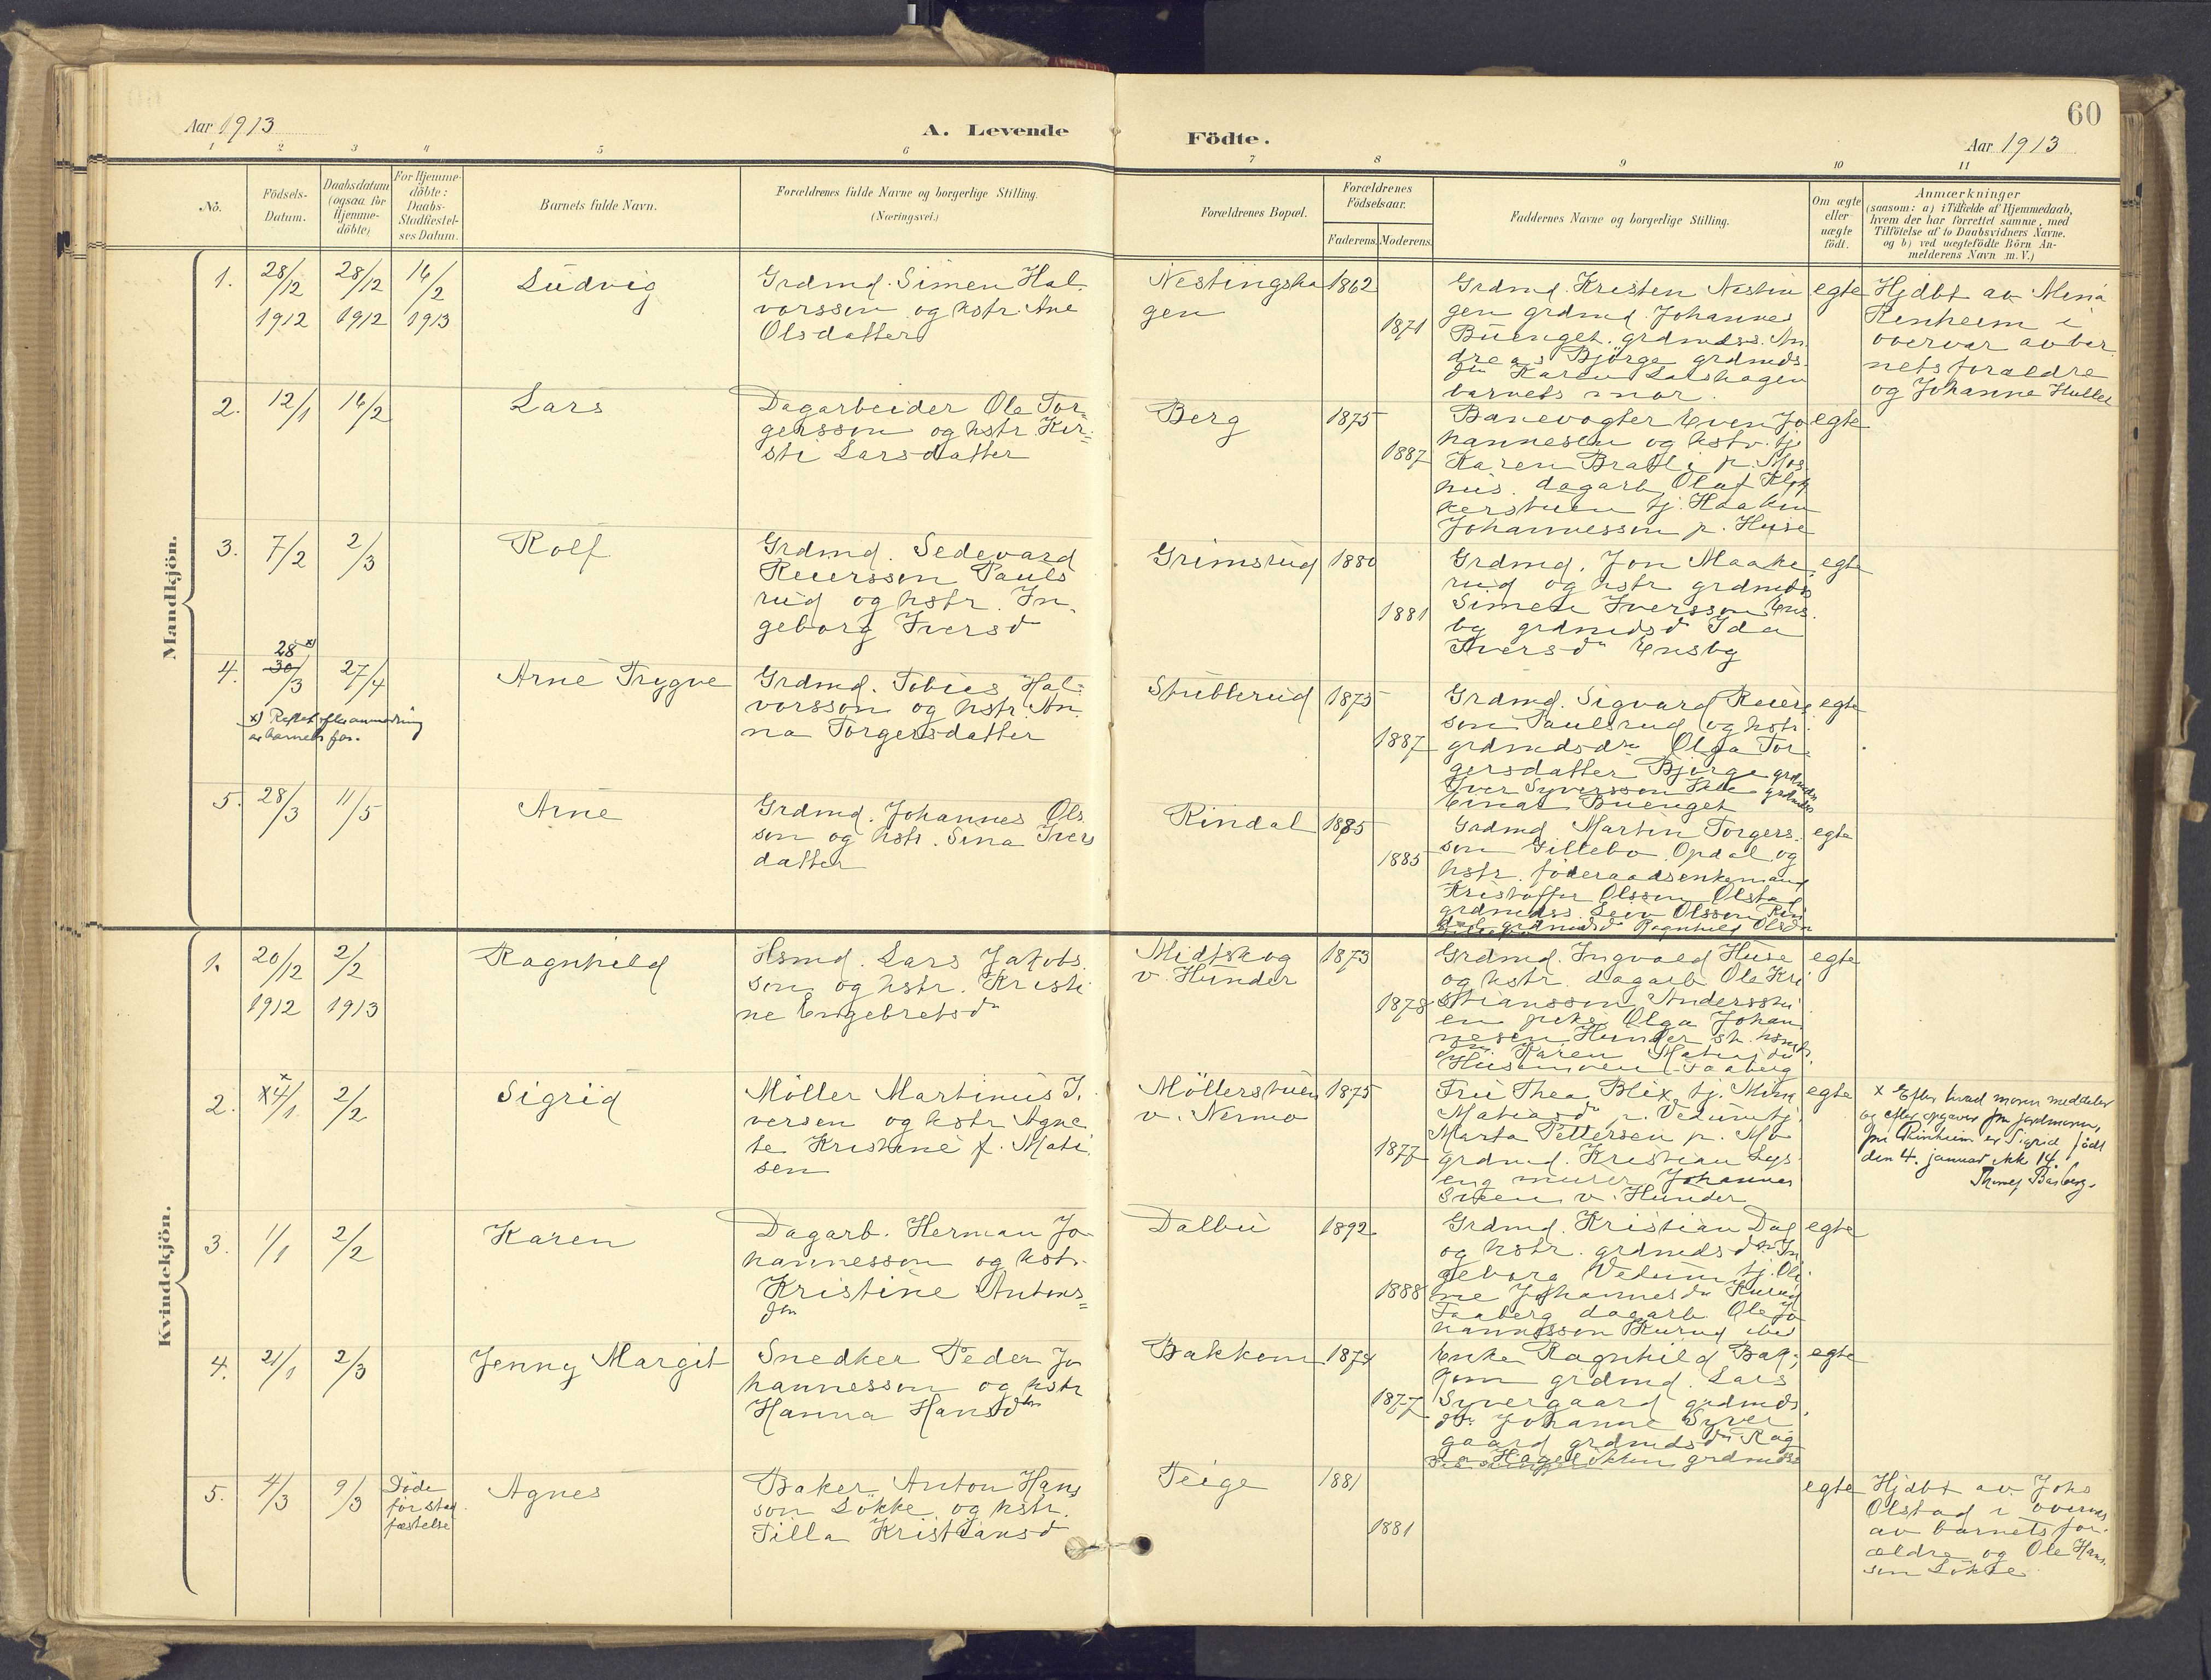 60
Aar 1913
A. Levende
Födte.
Aar 1913
1 2 3 4 5 6 7 8 9 10 11
No.
Födsels-
Datum.
Daabsdatum
(ogsaa for
Hjemme-
döbte)
For Hjemme-
döbte:
Daabs-
Stadfæstel-
ses Datum.
Barnets fulde Navn.
Forældrenes fulde Navne og borgerlige Stilling.
(Næringsvei.)
Forældrenes Bopæl.
Forældrenes
Födselsaar.
Faderens. Moderens.
Faddernes Navne og borgerlige Stilling.
Om ægte
eller
uægte
födt.
Anmærkninger
(saasom: a) i Tilfælde af Hjemmedaab,
hvem der har forrettet samme, med
Tilföielse af to Daabsvidners Navne.
og b) ved uægtefödte Börn An-
melderens Navn m. V.)
Mandkjön.
1.
28/12
1912
28/12
1912
16/2
1913
Ludvig
Grdmd. Simen Hal
vorssen og hstr. Ane
Olsdatter
Nestingsha
gen
1862
1871
Grdmd. Kristen Nestin
gen grdmd. Johannes
Buenget. grdmdss. An
dreas Björge grdmds
dtr Karen Larshagen
barnets mor.
egte
Hjdbt av Mina
Renheim i
overvær av bar
nets forældre
og Johanne
2.
12/1
16/2
Lars
Dagarbeider Ole Tor-
gerssen og hstr. Kir-
sti Larsdatter
Berg
1875
1887
Banevogter Even Jo
hannesen og hstr. tj
Karen Bratli p. Mos
hus. dagarb. Olaf Klok
kerstuen tj. Haakon
Johannessen p. Huse
egte
3.
7/2
2/3
Rolf
Grdmd. Sedevard
Reierssen Pauls
rud og hstr. In
geborg Iversd
Grimsrud
1880
1881
Grdmd. Jon Maake
rud og hstr grdmds
Simen Iverssen Ens
by grdmdsdr Ida
Iversdr Ensby
egte
4.
28 x)
30/3
27/4
x) Rettet efter anmodning
av barnets far.
Arne Trygve
Grdmd. Tobias Hal
vorsson og hstr. An
na Torgersdatter
Stubberud
1875
1887
Grdmd. Sigvard Reiers
son Paulsrud og hstr.
grdmdsdr Olga Tor
gersdatter Bjørge grdmds
Iver Syversson grdmds
Einar Buenget
egte
5.
28/3
11/5
Arne
Grdmd. Johannes Ols
son og hstr. Sina Ivers
datter
Rindal
1885
1885
Grdmd. Martin Torgers
son Gillebo Opdal og
hstr. föderaadsenkemand
Kristoffer Olsson Olstad
grdmdss. Olsson Rin
dal grdmdsdr Ragnhild Olsdr
egte
Kvindekjön.
1.
20/12
1912
2/2
1913
Ragnhild
Hsmd. Lars Jakobs
son og hstr. Kristi
ne Engebretsdr
Midtskog
v. Hunder
1873
1878
Grdmd. Ingvald Huse
og hstr. dagarb. Ole Kri
stiansson Andersstu
en pike Olga Johan
nesen Hunder st. hsmds
Karen Matiasdr
Husmoen Faaberg
egte
2.
x4/1
2/2
Sigrid
Möller Martinus I.
versen og hstr Agne
te Kristine f. Mati
sen
Möllerstuen
v. Nermo
1875
1877
Fru Thea Blix, tj. Mina
Matiasdr p. Vedum tj.
Marta Pettersen p. Mo
grdmd. Kristian Lys
eng murer Johannes
Sveen v. Hunder
egte
x Efter hvad moren meddeler
og efter opgaver fra jordmoren,
fru Rinheim er Sigrid født
den 4. januar ikke 14.
3.
1/1
2/2
Karen
Dagarb. Herman Jo
hannesson og hstr.
Kristine Antons-
dtr
Dalbu
1892
1888
Grdmd. Kristian Dal
og hstr. grdmdsdr In
geborg Vedum tj. Oli
ne Johannesdr Kurud
Faaberg dagarb. Ole Jo
hannesson Kurud ibid
egte
4.
21/1
2/3
Jenny Margit
Snedker Peder Jo
hannesson og hstr
Hanna Hansdtr
Bakken
1874
1877
Enke Ragnhild Bak-
ken grdmd. Lars
Syvergaard grdmds
dtr Johanne Syver
gaard grdmdsdr Rag
grdmds
egte
5.
4/3
9/3
Döde
för stad
fæstelse
Agnes
Baker Anton Hans
son Lökke og hstr.
Tilla Kristiansd
Teige
1881
1881
egte
Hjdbt av Johs
Olstad i overvær
av barnets for-
ældre og Ole Hans
son Lökke